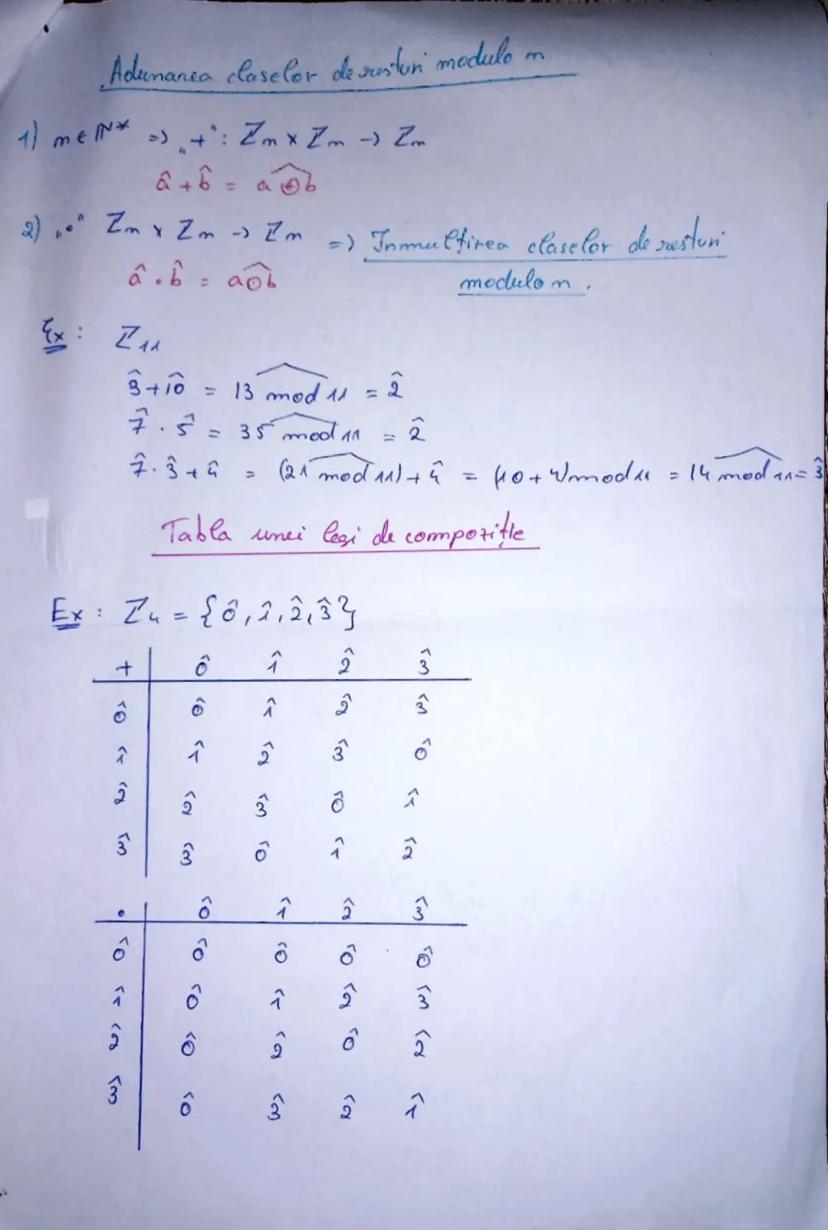 Adunarea claselor de resturi modulo n
1) n ∈ ℕ* => „+": ℤn × ℤn -> ℤn
â + b̂ = a⊕b̂
2) „•" ℤn × ℤn -> ℤn => Inmulțirea claselor de resturi
â • b̂ = a⊙b̂ modulo n.
Ex: ℤ11
3̂ + 10̂ = 13 mod 11 = 2̂
7̂ · 5̂ = 35 mod 11 = 2̂
7̂ · 3̂ + 4̂ = (21 mod 11) + 4̂ = (10 + 4) mod 11 = 14 mod 11 = 3̂
Tabla unei legi de compoziție
Ex: ℤ4 = {0̂, 1̂, 2̂, 3̂}
+ 0̂ 1̂ 2̂ 3̂
0̂ 0̂ 1̂ 2̂ 3̂
1̂ 1̂ 2̂ 3̂ 0̂
2̂ 2̂ 3̂ 0̂ 1̂
3̂ 3̂ 0̂ 1̂ 2̂
• 0̂ 1̂ 2̂ 3̂
0̂ 0̂ 0̂ 0̂ 0̂
1̂ 0̂ 1̂ 2̂ 3̂
2̂ 0̂ 2̂ 0̂ 2̂
3̂ 0̂ 3̂ 2̂ 1̂